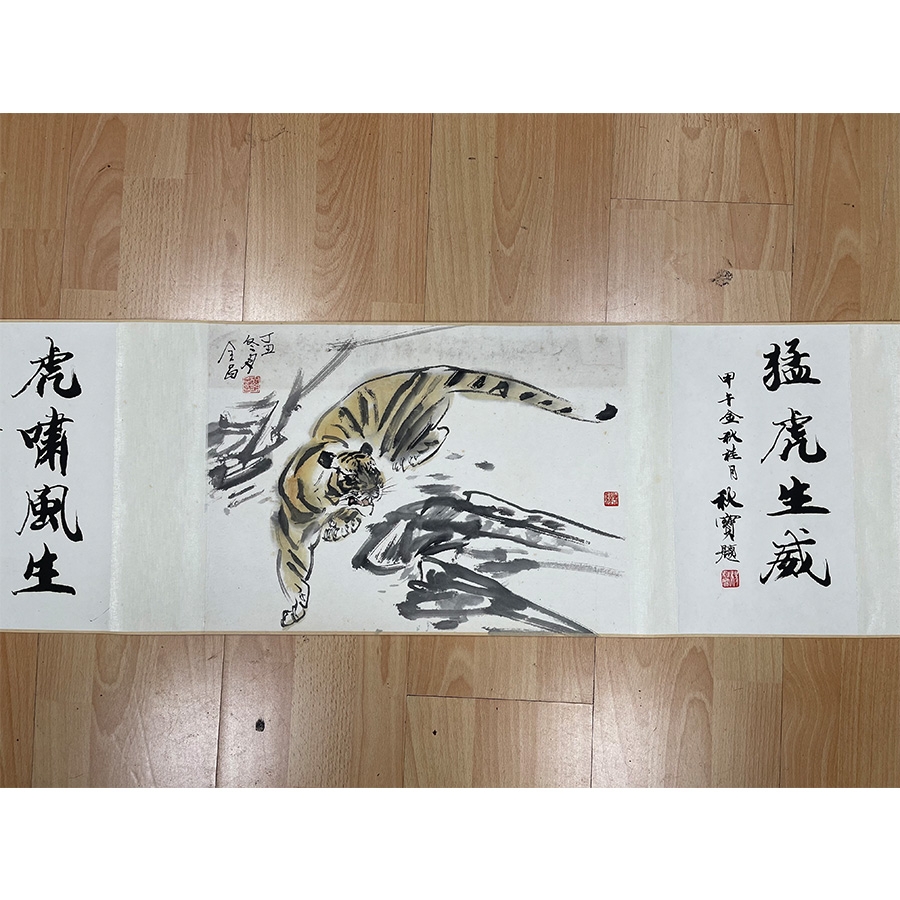 猛虎生威
甲午金秋桂月
秋寶題
丁丑
冬月
全昌
虎嘯風生